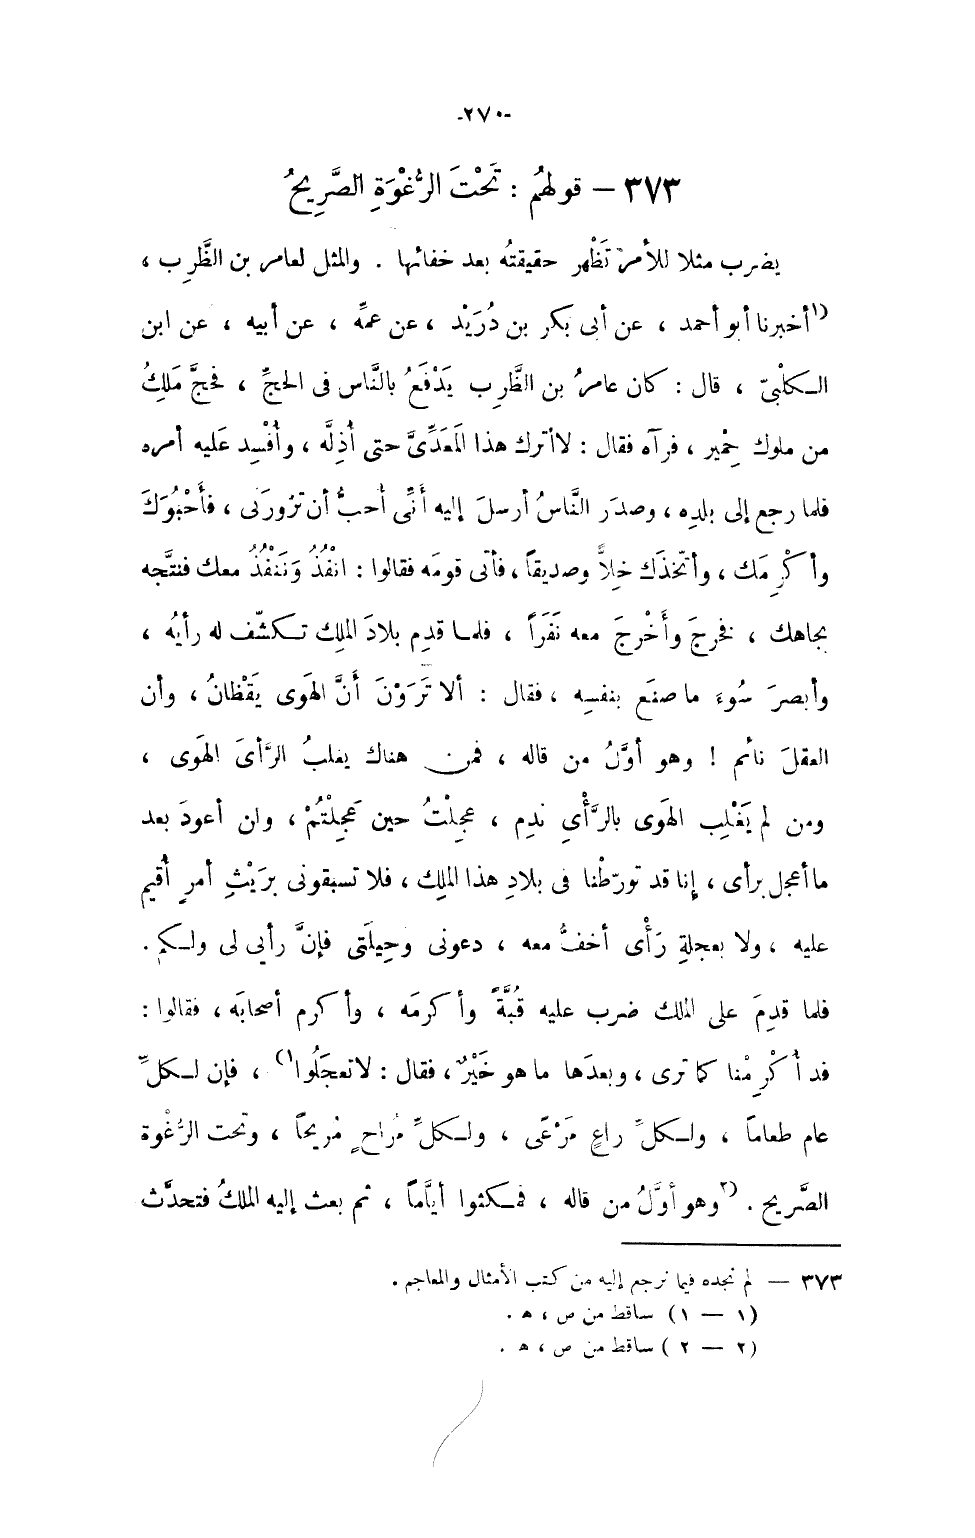 -٢٧٠-
٣٧٣ – قولهُم : تَحْتَ الرُّغْوَةِ الصَّرِيحُ
يضرب مثلا للأمر تَظْهر حقيقتُه بعد خفائها . والمثل لعامر بن الظَّرِب ،
(١أخبرنا أبو أحمد ، عن أبى بَكر بن دُرَيْد ، عن عمِّه ، عن أبيه ، عن ابن
الـكلْبىّ ، قال : كان عامرُ بن الظَّرِب يَدْفَعُ بالنَّاس فى الحجِّ ، فحجَّ مَلكُ
من ملوك حِمْير ، فرآه فقال : لا أترك هذا المَعَدِّىَّ حتى أُذِلَّه ، وأُفْسِد عَليه أمره
فلما رجع إلى بلدِه ، وصدَر النَّاسُ أرسلَ إليه أَنِّى أحبُّ أن تزُورَنى ، فأَحْبُوَكَ
وأكْرِمَك ، وأتّخذَك خِلاًّ وصديقاً ، فأتى قومَه فقالوا : انْفُذْ وَنَنْفُذُ معك فنتَّجه
بجاهك ، فخرجَ وأَخْرجَ معه نَفَرَاً ، فلمـا قدِم بلادَ الملِك تـكشّف له رأيُه ،
وأبصرَ سُوءَ ما صنَع بنفسِه ، فقال : ألا تَرَوْنَ أَنَّ الهَوى يَقْظانُ ، وأن
العقلَ نائم ! وهو أوَّلُ من قاله ، فمن هناك يغلبُ الرَّأىَ الهَوى ،
ومن لم يَغْلِب الهَوى بالرَّأْيِ ندِم ، عجِلْتُ حين عَجِلْتُمْ ، ولن أعودَ بعد
ما أعجل برأى ، إِنا قد تورّطْنا فى بلادِ هذا الملِك ، فلا تسبقونى برَيْثِ أمرٍ أُقيم
عليه ، ولا بعجلةِ رَأْى أخفُّ معه ، دعونى وحِيلَتى فإنَّ رأيى لى ولـكم .
فلما قدِمَ على الملك ضرب عليه قُبَّةً وأكرمَه ، وأكرم أصحابَه ، فقالوا :
قد أُكْرِمْنا كما ترى ، وبعدَها ما هو خَيْرٌ ، فقال : لا تعجَلُوا١) ، فإن لـكلِّ
عام طعاماً ، ولـكلِّ راعٍ مَرْعَى ، ولـكلِّ مُراحٍ مُريحاً ، وتحت الرُّغْوة
الصَّريح . (٢وهو أوَّلُ من قاله ، فمـكثوا أيَّاماً ، ثم بعث إليه الملكُ فتحدَّث
٣٧٣ — لم نجده فيما نرجع إليه من كتب الأمثال والمعاجم .
(١ — ١) ساقط من ص ، ه .
(٢ — ٢) ساقط من ص ، ه .